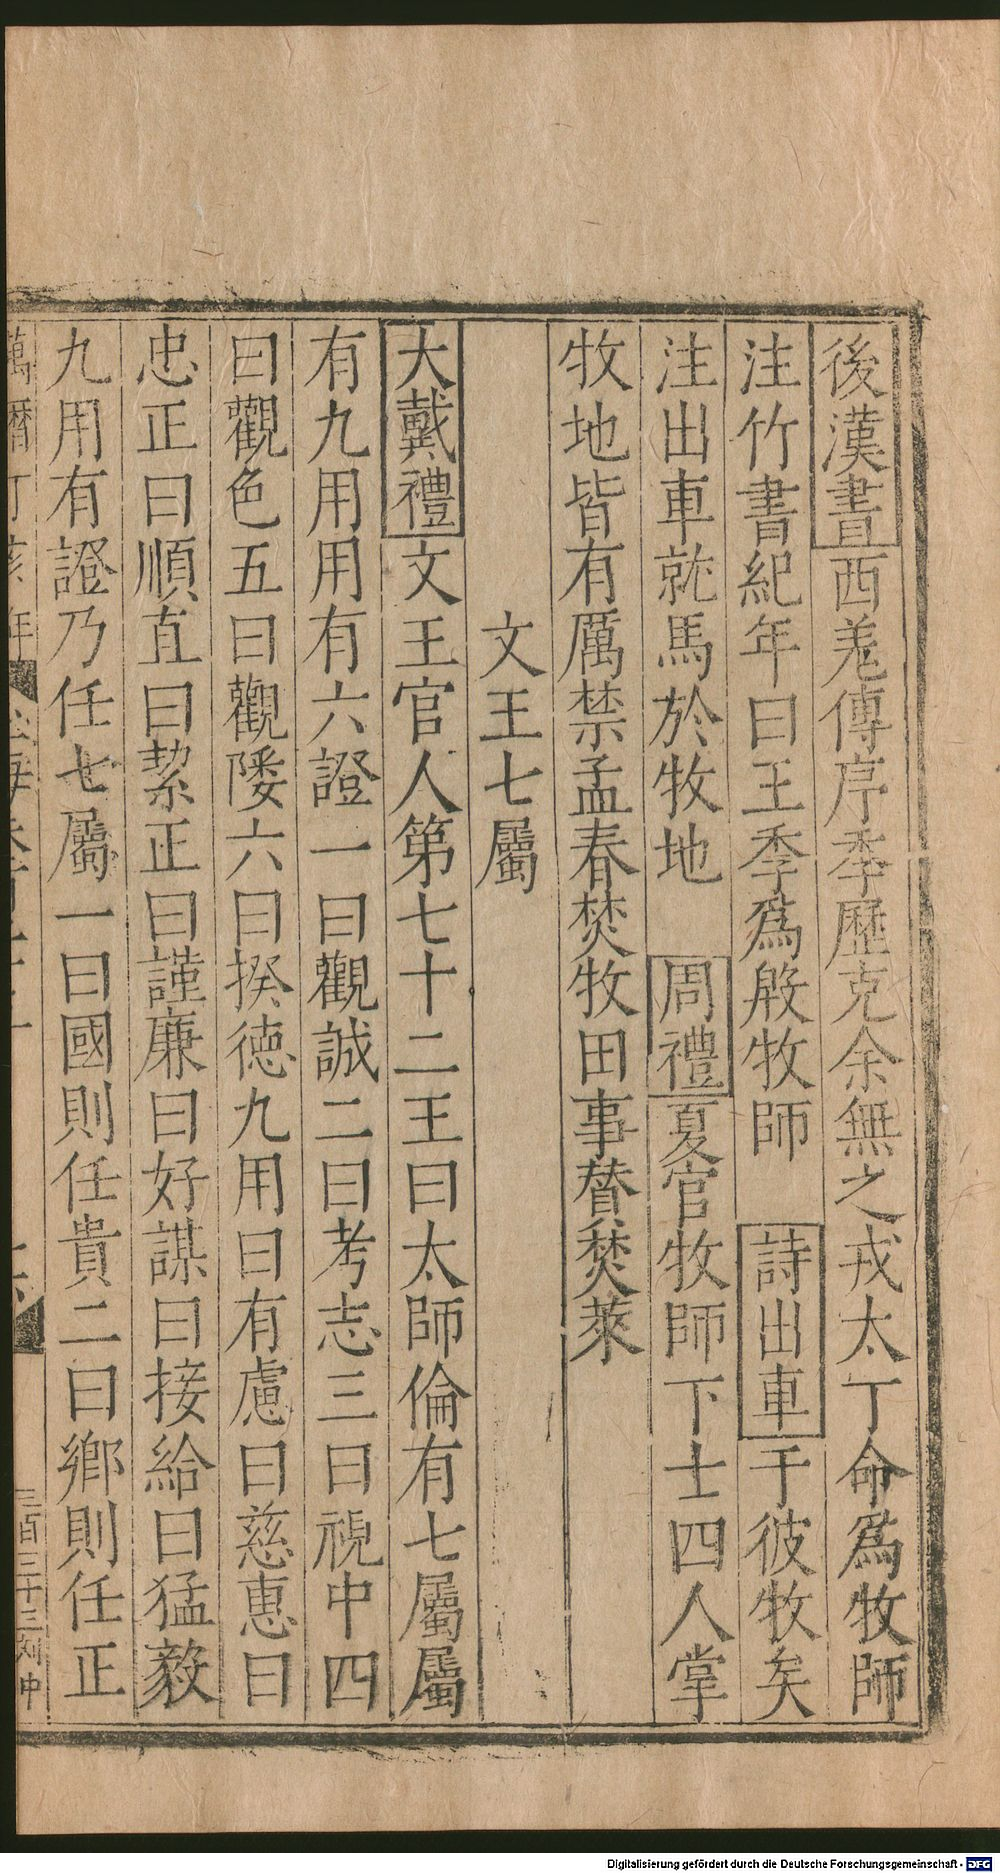 後漢書西羌傳序季歷克余無之戎太丁命爲牧師
注竹書紀年曰王季爲殷牧師　詩出車于彼牧矣
注出車就馬於牧地　周禮夏官牧師下士四人掌
牧地皆有厲禁孟春焚牧田事賛焚萊
文王七屬
大戴禮文王官人第七十二王曰太師倫有七屬屬
有九用用有六證一曰觀誠二曰考志三曰視中四
曰觀色五曰觀隱六曰揆德九用曰有慮曰慈惠曰
忠正曰順直曰絜正曰謹廉曰好謀曰接給曰猛毅
九用有證乃任七屬一曰國則任貴二曰鄉則任正
萬曆丁亥年
三百三十三刘中
Digitalisierung gefördert durch die Deutsche Forschungsgemeinschaft - DFG